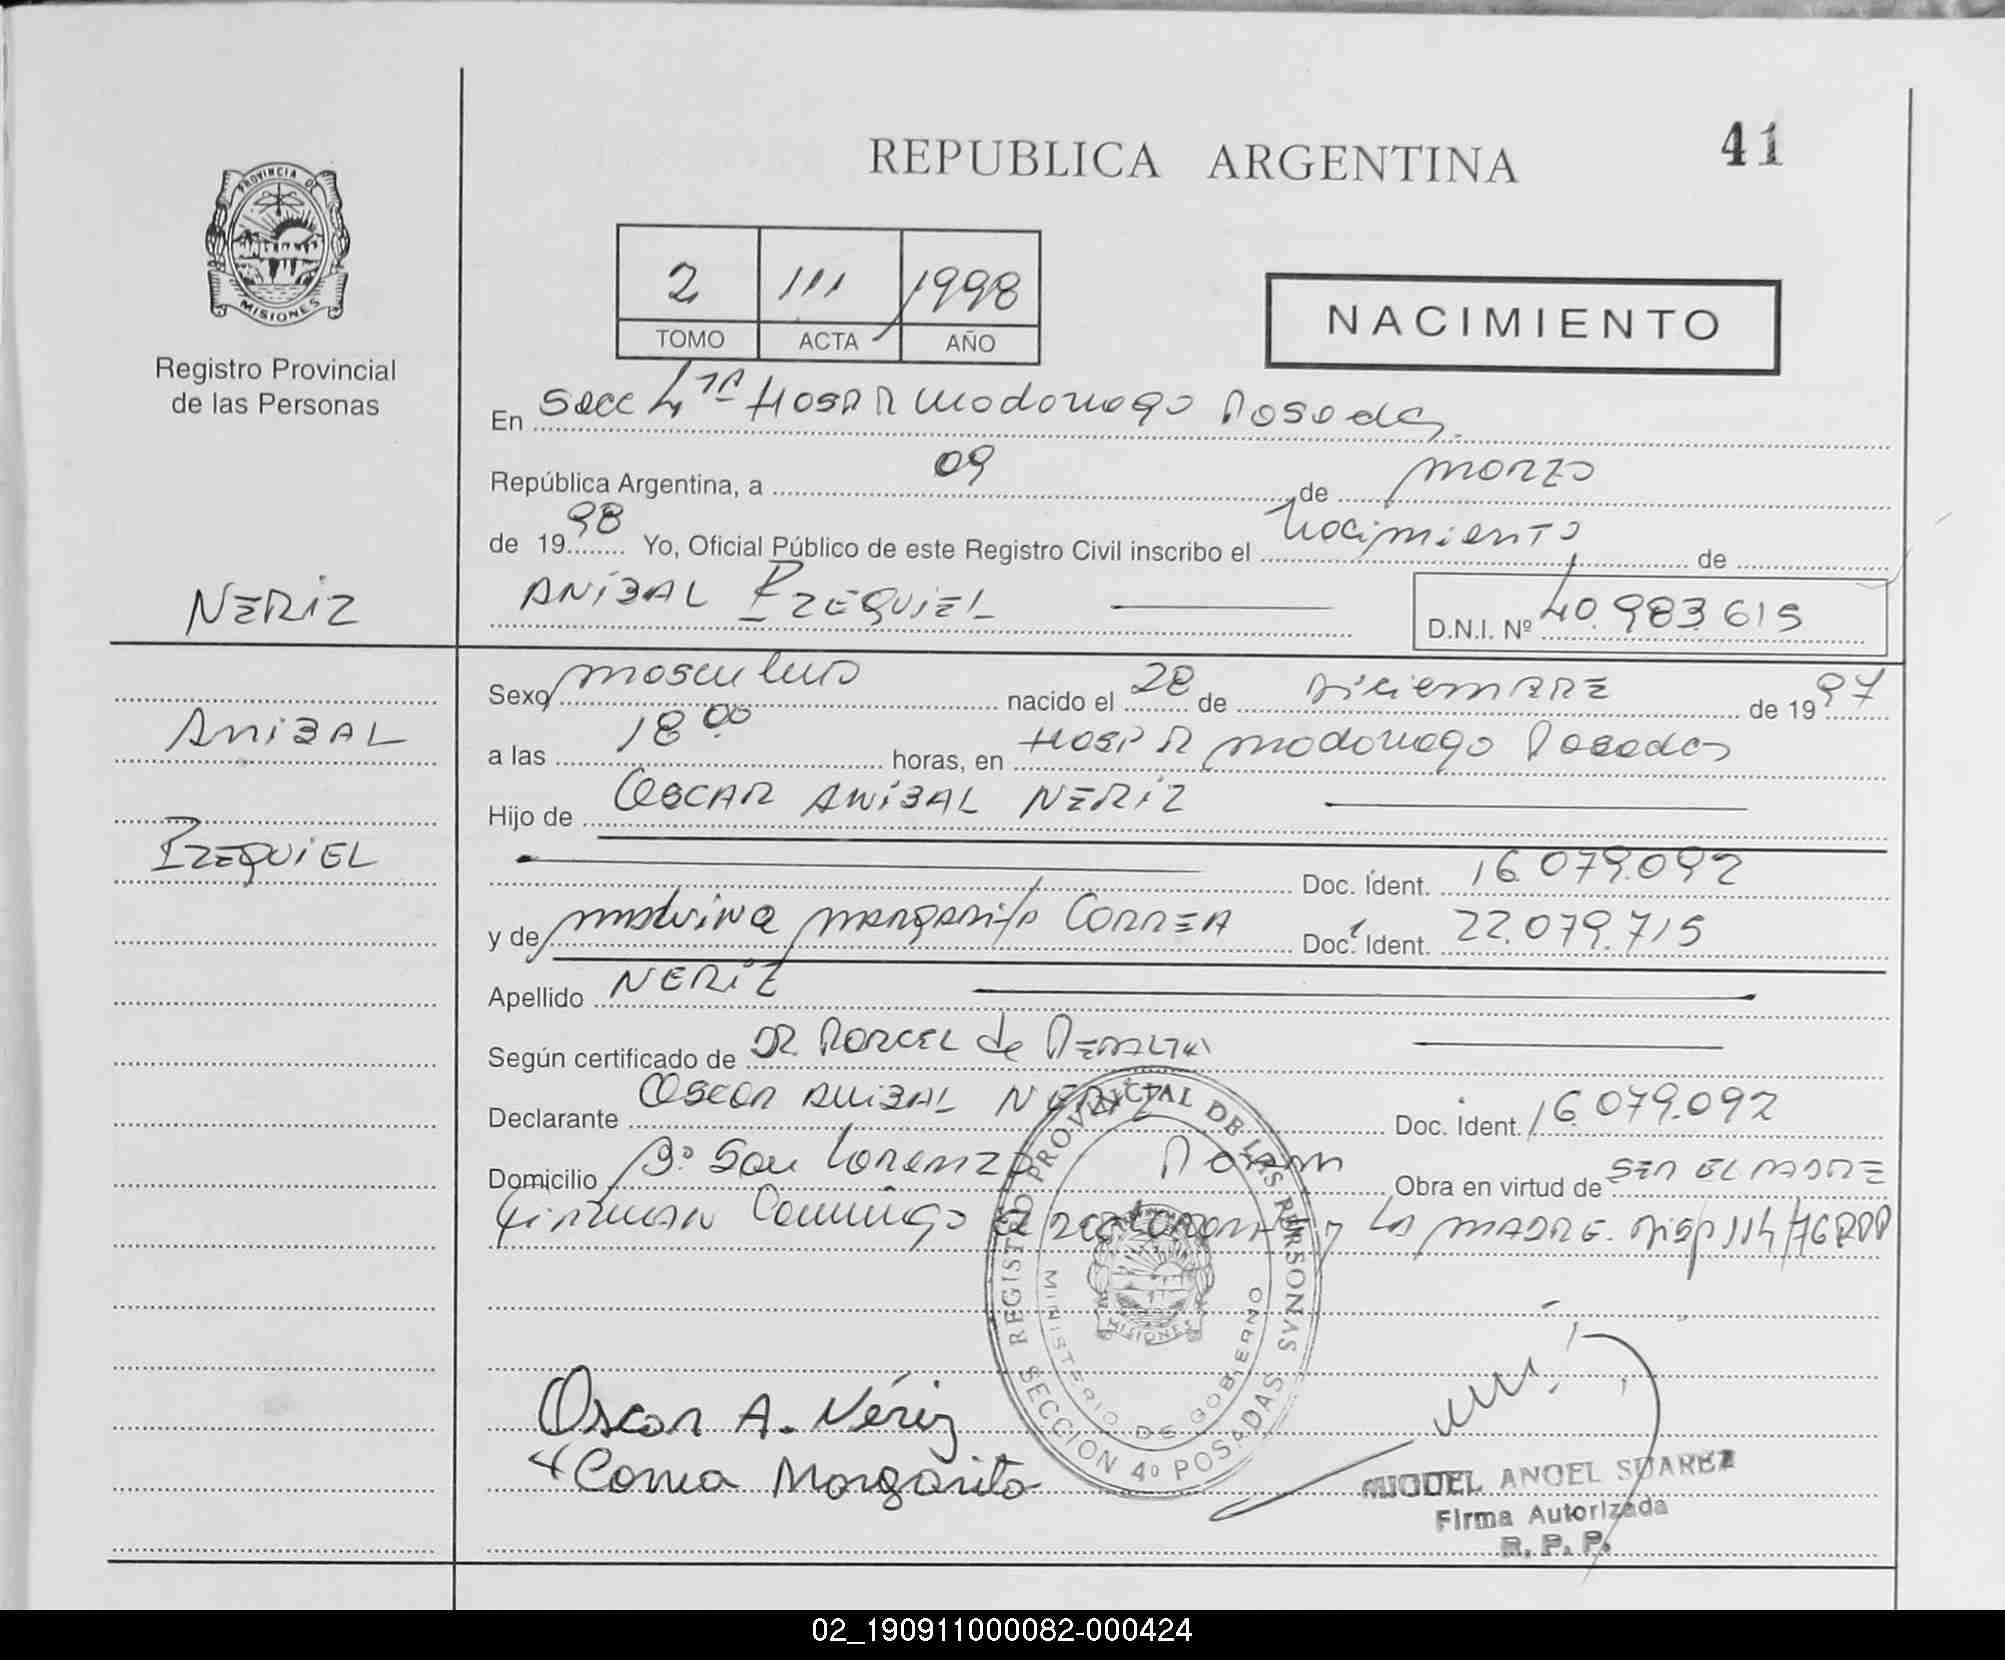 REPUBLICA ARGENTINA
41
PROVINCIA DE
MISIONES
Registro Provincial
de las Personas
2 111 1998
TOMO ACTA AÑO
NACIMIENTO
En Secc 4ta Hosp R Madariaga Posadas
República Argentina, a 09 de marzo
de 1998 Yo, Oficial Público de este Registro Civil inscribo el nacimiento de
NERIZ
ANIBAL EZEQUIEL D.N.I. Nº 40.983.615
Sexo masculino nacido el 28 de diciembre de 1997
ANIBAL
a las 18 00 horas, en Hosp R Madariaga Posadas
Hijo de OSCAR ANIBAL NERIZ
EZEQUIEL
Doc. Ident. 16.079.092
y de malvina margarita CORREA Doc. Ident. 22.079.715
Apellido NERIZ
Según certificado de DR. PORCEL de PERALTA
Declarante OSCAR ANIBAL NERIZ Doc. Ident. 16.079.092
Domicilio Bº San Lorenzo Obra en virtud de SER EL PADRE
firman Conmigo el declarante y la MADRE. Disp 114/76 RPP
REGISTRO PROVINCIAL DE LAS PERSONAS
MINISTERIO DE GOBIERNO
MISIONES
SECCION 4º POSADAS
Oscar A. Nériz
Correa Margarita
MIGUEL ANGEL SUAREZ
Firma Autorizada
R. P. P.
02_190911000082-000424